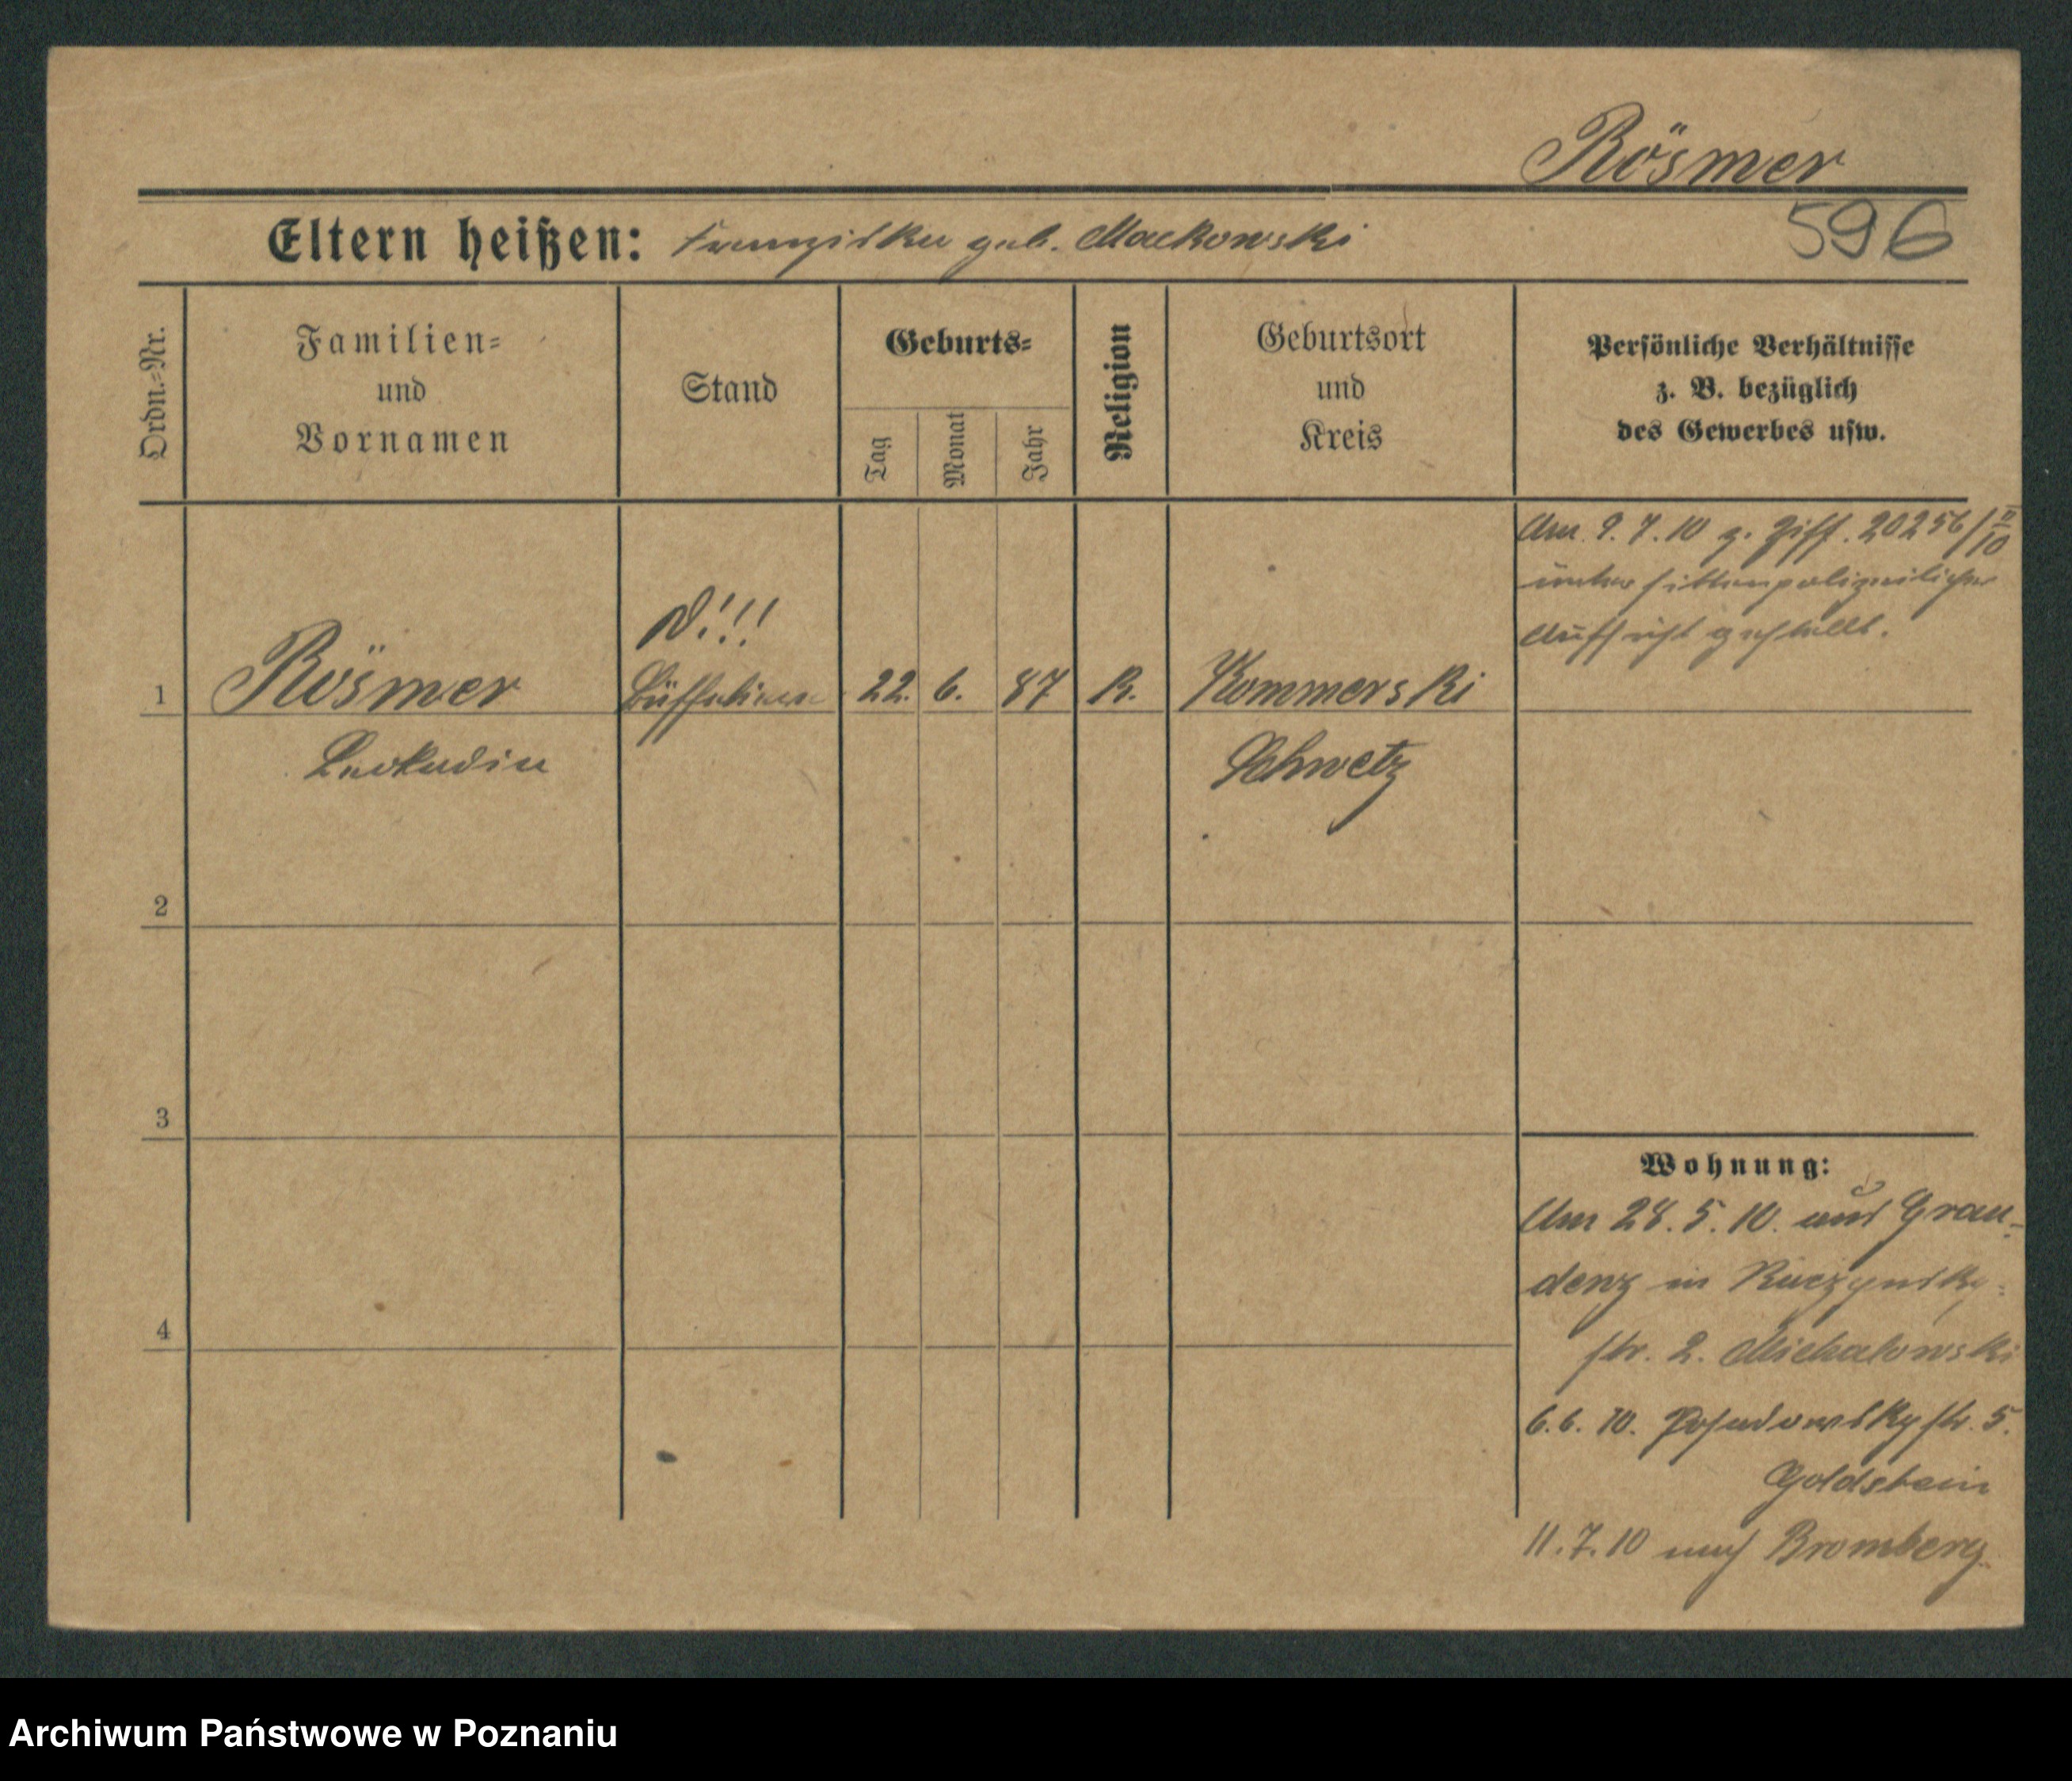 Rösmer
596
Eltern heißen: Franziska geb. Mackowski
Ordn.=Nr.
Familien=
und
Vornamen
Stand
Geburts=
Tag
Monat
Jahr
Religion
Geburtsort
und
Kreis
Persönliche Verhältnisse
z. B. bezüglich
des Gewerbes usw.
Am 9.7.10 z. Ziff. 20256/II/10
unter sittenpolizeiliche
Aufsicht gestellt.
!!!
1 Rösmer 22. 6. 87 K. Kommerski
Leokadia Schwetz
2
3
4
Wohnung:
Am 28.5.10. aus Grau-
denz in
str. 2. Michalowski
6.6.10. Posadowskystr. 5.
Goldstein
11.7.10 nach Bromberg.
Archiwum Państwowe w Poznaniu